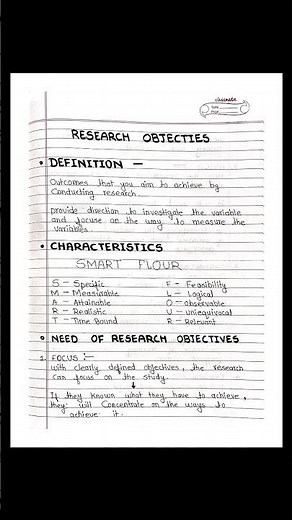 RESEARCH OBJECTIES
• DEFINITION —
Outcomes that you aim to achieve by
Conducting research.
provide direction to investigate the variable
and focuse on the way to measure the
variables.
• CHARACTERISTICS
SMART FLOUR
S - Specific F - Feasibility
M - Measurable L - Logical
A - Attainable O - observable
R - Realistic U - unequivocal
T - Time Bound R - Relevant
• NEED OF RESEARCH OBJECTIVES
1. FOCUS :-
with clearly defined objectives, the research
can focus on the study.
↓
If they known what they have to achieve,
they will Concentrate on the ways to
achieve it.